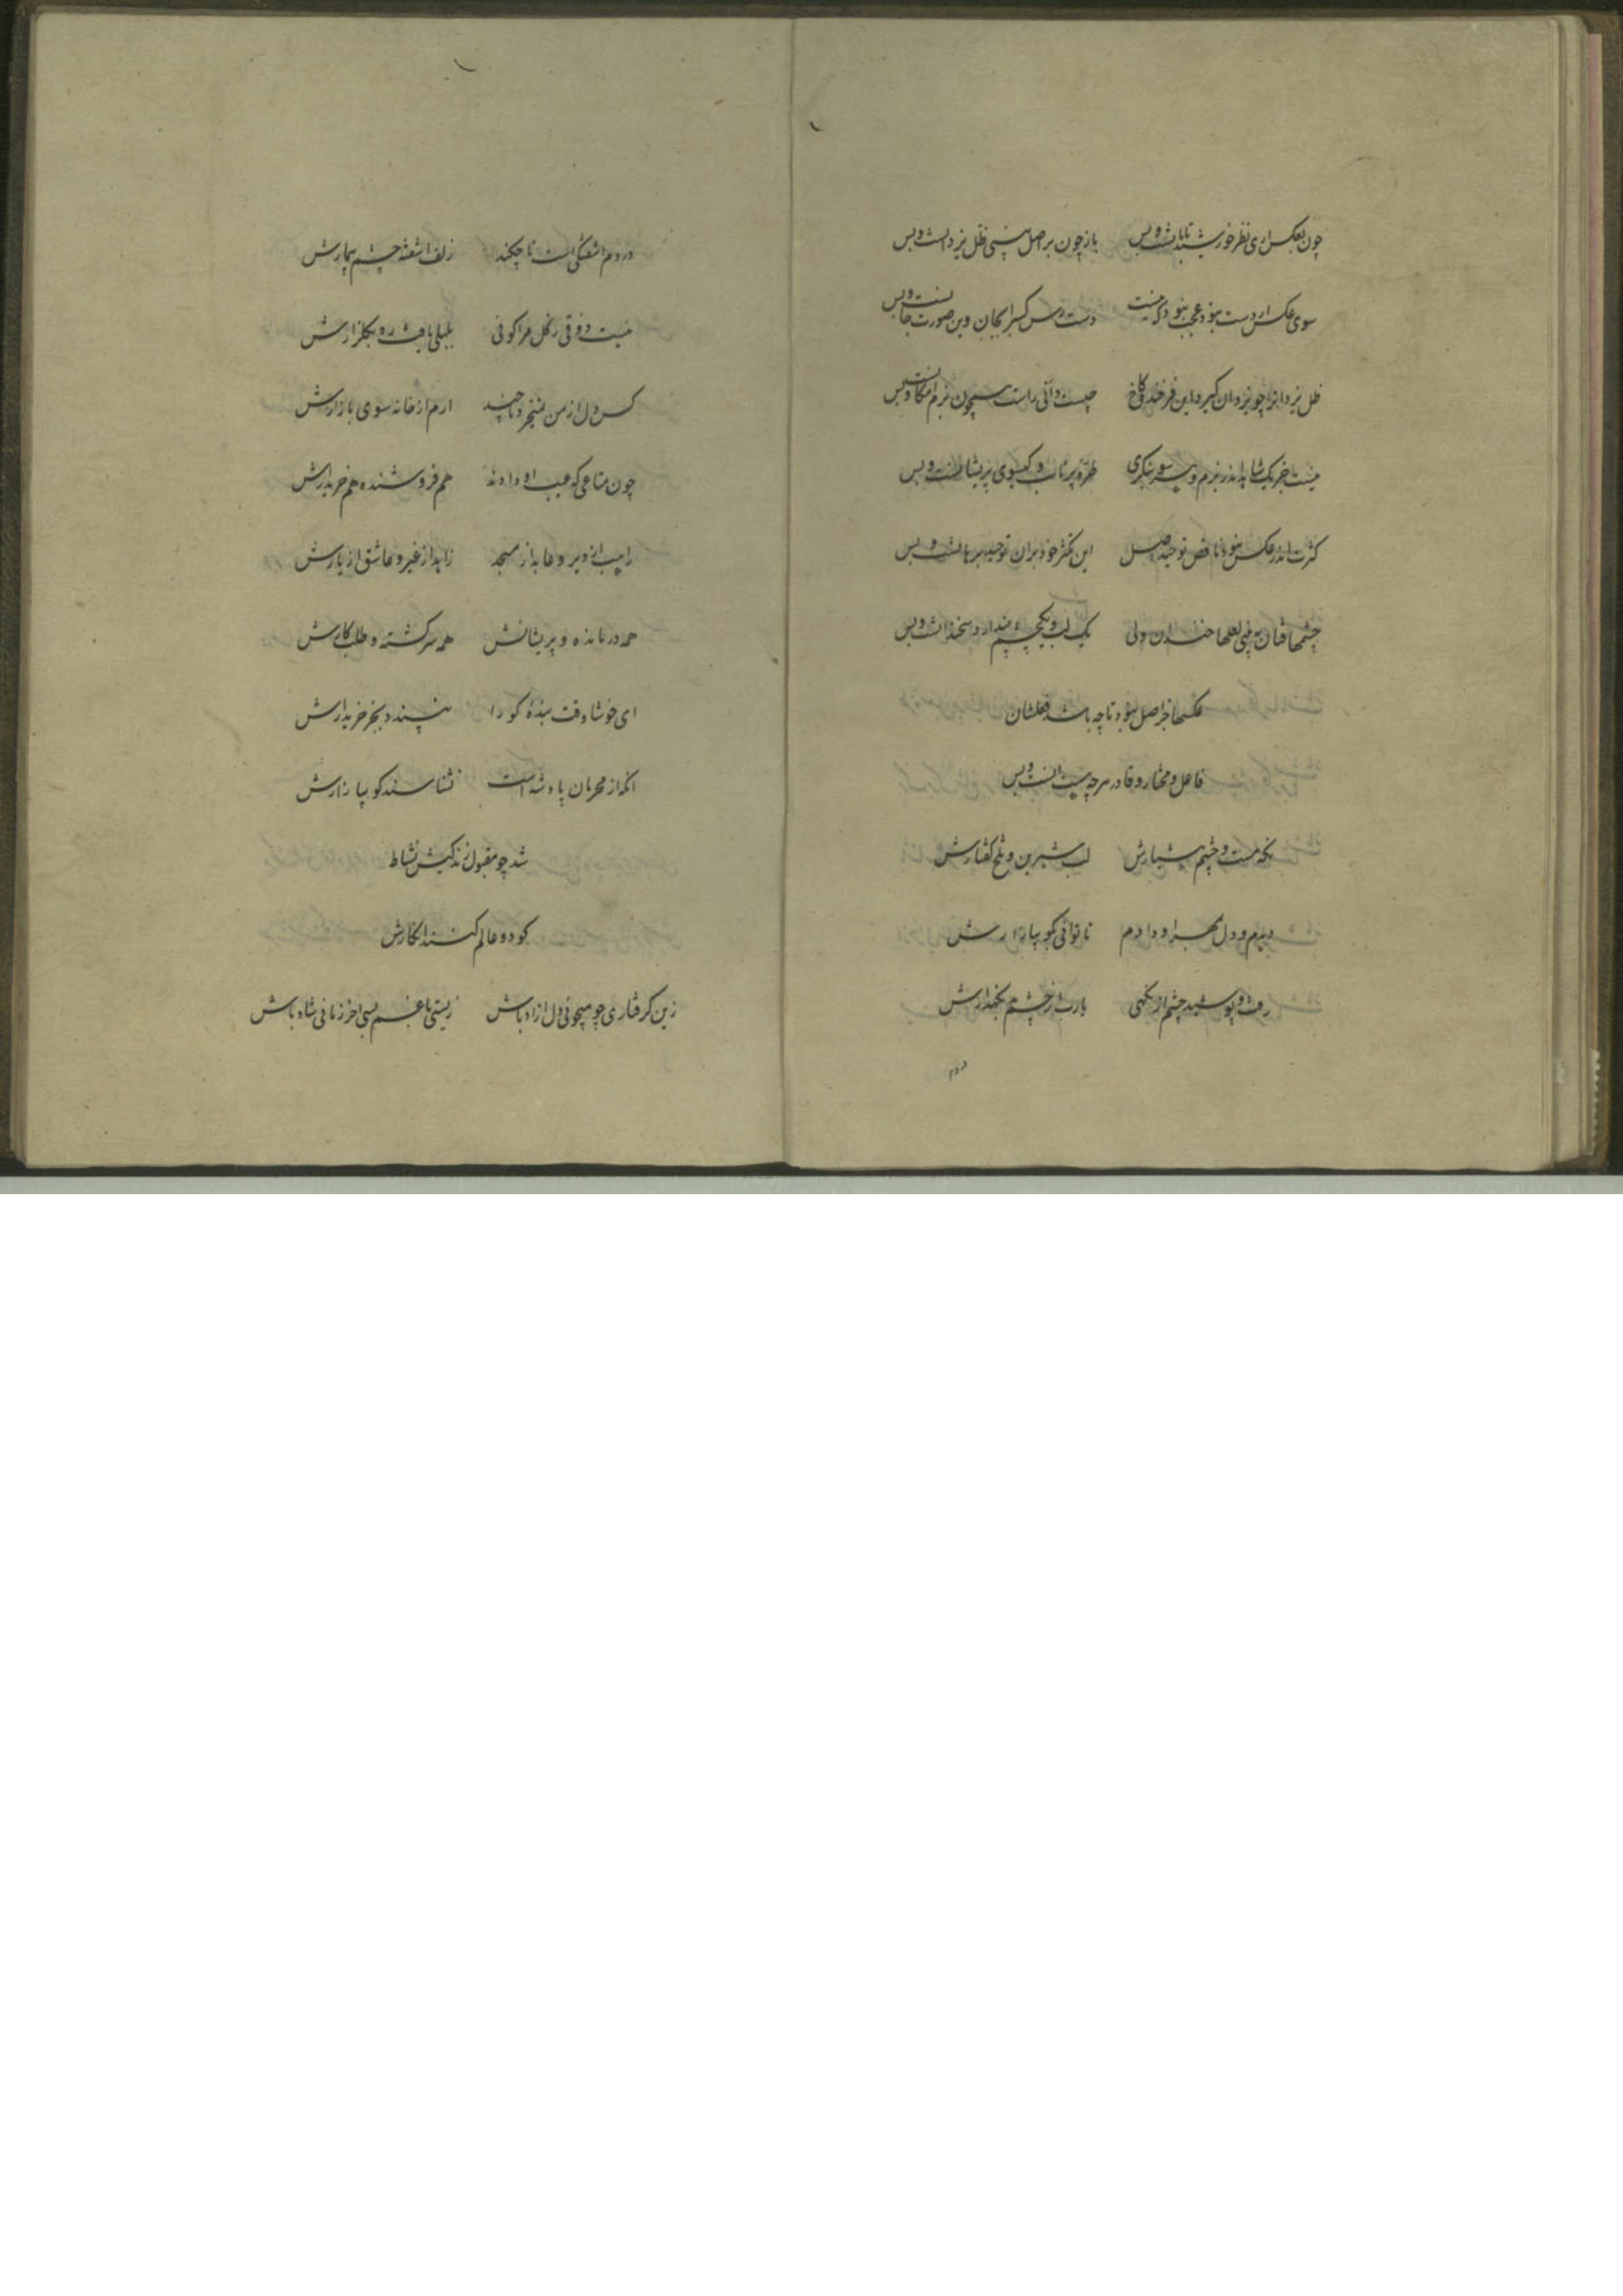 چون بعکس اری نظر خورشید تابانست و بس باز چون بر اصل بینی ظل یزدانست و بس
سوی عکس ار دست نبود عجب نبود که نیست دست دس کس را بجان وین صورت جانست و بس
ظل یزدانرا چو یزدان گیر و این فرخنده کاخ چیست دانی راست همچون بزم امکانست و بس
نیست جز یک شاهد اندر بزم و هر سو بنگری طره پرتاب و گیسوی پریشانست و بس
کثرت اندر عکس نبود ناقض توحید اصل این تکثر خود بران توحید برهانست و بس
چشمها فتان به بینی لعلها خندان ولی یک لب و یک چشم فتان و سخندانست و بس
عکسها جز اصل نبود تا چه باشد فعلشان
فاعل و مختار و قادر هرچه هست انست و بس
نگه مست و چشم هشیارش لب شیرین و تلخ گفتارش
دیدم و دل بمهر او دادم ناتوانی نکو بیازارش
رفت و پوشید چشم از نگهی یارب از چشم بد نگهدارش
دردم
در دم اشفتگی است تا چکند زلف اشفته چشم بیمارش
نیست ذوقی ز گل مرا گوئی بلبلی یافت ره بگلزارش
کس دل از من نمیخرد تا چند ارم از خانه سوی بازارش
چون متاعی که عیب او دادند هم فروشنده هم خریدارش
راهب از دیر و عابد از مسجد زاهد از غیر و عاشق از یارش
همه درمانده و پریشانش همه سرگشته و طلبکارش
ای خوشا وقت بنده کو را نپسندد بجز خریدارش
انکه از محرمان پادشه است نشناسند کو ببازارش
شد چو مقبول بندگیش نشاط
گو دو عالم کنند انکارش
زین گرفتاری چو میجوئی دل ازاد باش زیستی با غم بسی اخر زمانی شاد باش